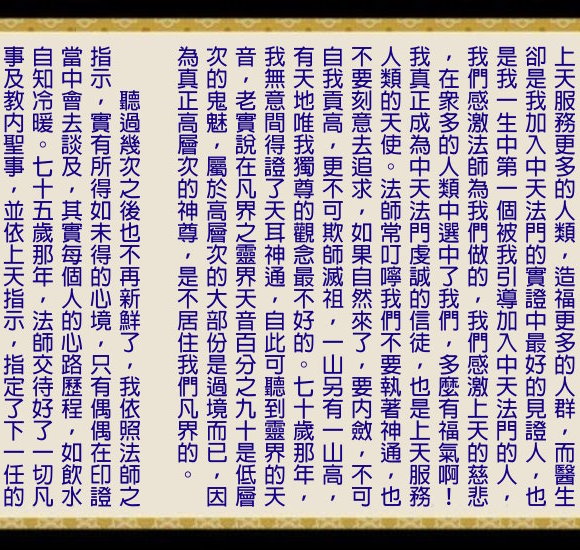 上天服務更多的人類，造福更多的人群，而醫生
卻是我加入中天法門的實證中最好的見證人，也
是我一生中第一個被我引導加入中天法門的人，
我們感激法師為我們做的，我們感激上天的慈悲
，在衆多的人類中選中了我們，多麼有福氣啊！
我真正成為中天法門虔誠的信徒，也是上天服務
人類的天使。法師常叮嚀我們不要執著神通，也
不要刻意去追求，如果自然來了，要内斂，不可
自我貢高，更不可欺師滅祖，一山另有一山高，
有天地唯我獨尊的觀念最不好的。七十歲那年，
我無意間得證了天耳神通，自此可聽到靈界的天
音，老實說在凡界之靈界天音百分之九十是低層
次的鬼魅，屬於高層次的大部份是過境而已，因
為真正高層次的神尊，是不居住我們凡界的。
聽過幾次之後也不再新鮮了，我依照法師之
指示，實有所得如未得的心境，只有偶偶在印證
當中會去談及，其實每個人的心路歷程，如飲水
自知冷暖。七十五歲那年，法師交待好了一切凡
事及教内聖事，並依上天指示，指定了下一任的